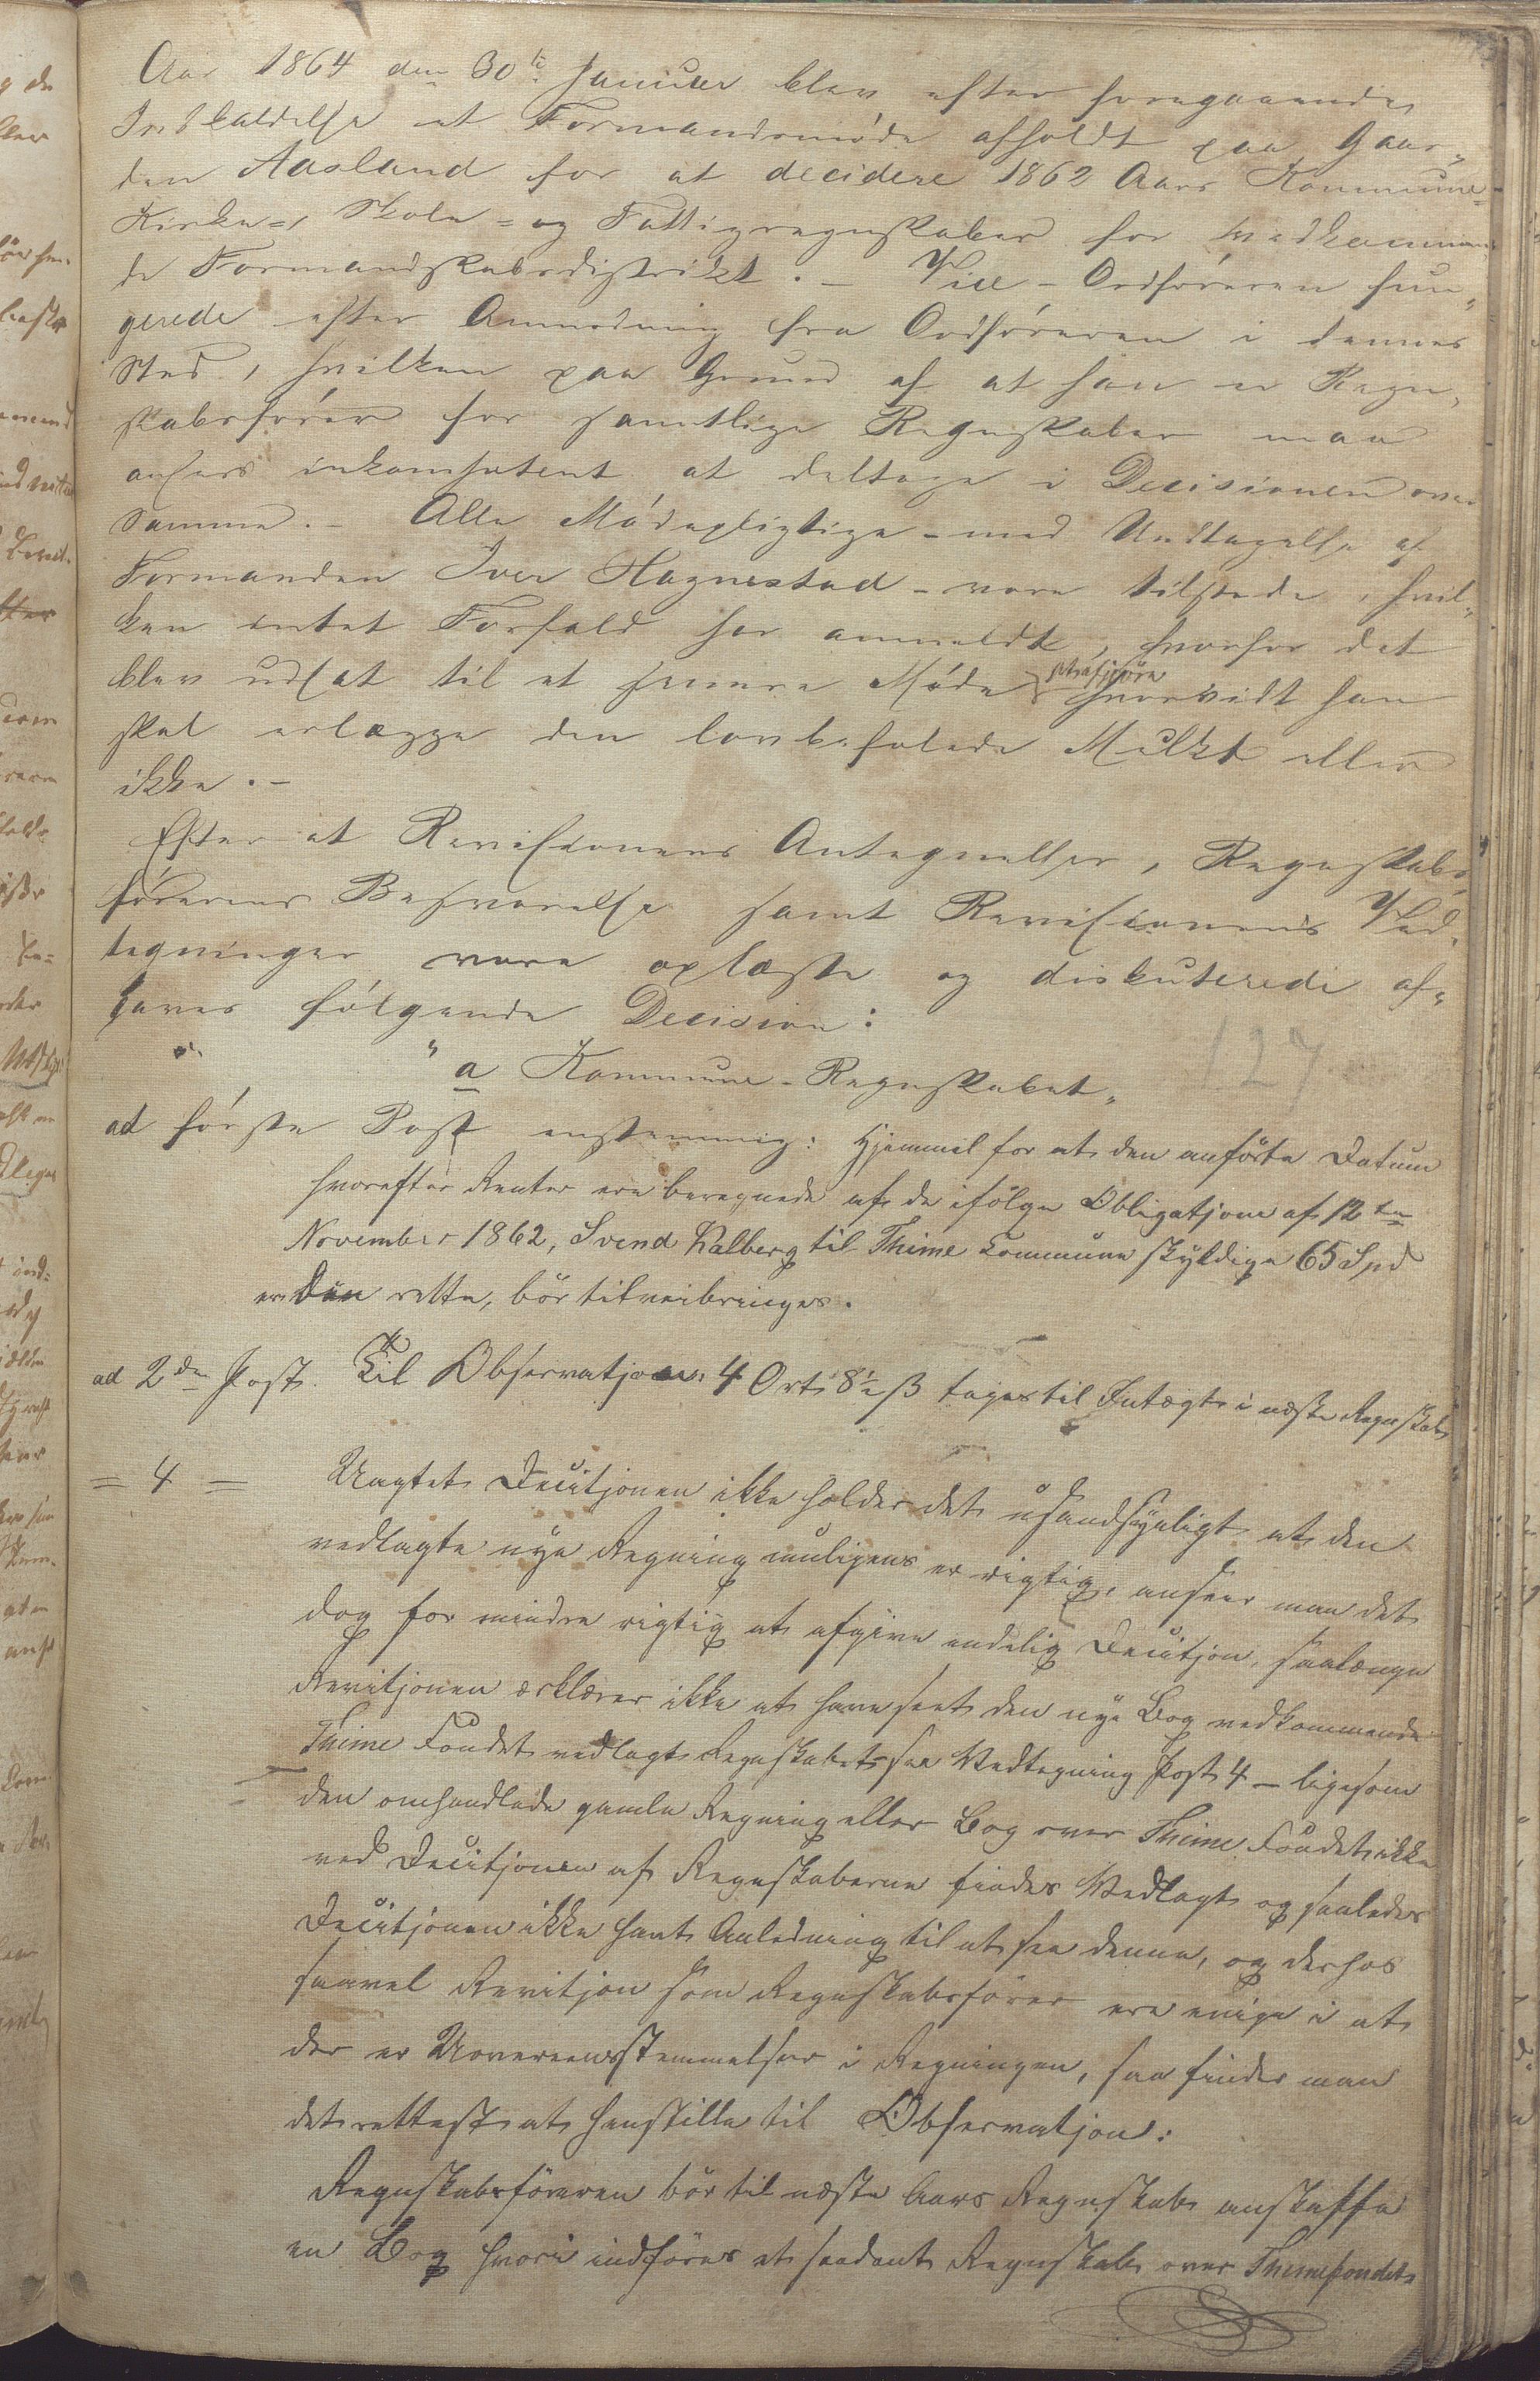 Aar 1864 den 30te Januar blev efter foregaaende
Indkaldelse et Formandsmøde afholdt paa Gaar„
den Aasland for at decidere 1862 Aars Kommune-
Kirke=, Skole= og Fattigregnskaber for vedkommen„
de Formandskabsdistrikt. – Vice-Ordføreren fun„
gerede efter Anmodning fra Ordføreren i dennes
Sted, hvilken paa Grund af at han er Regn„
skabsfører for samtlige Regnskaber maa
ansees inkompetent at deltage i Decisionen over
samme. – Alle Mødepligtige – med Undtagelse af
Formanden Iver Hagnestad – vare tilstede, hvil„
ken intet Forfald har anmeldt, hvorfor det
blev udsat til et senere Møde hvorvidt han
skal erlægge den lovbefalede Mulkt eller
ikke. –
Efter at Revisionens Antegnelser, Regnskabs„
førerens Besvarelse samt Revisionens Ved„
tegninger vare oplæste og diskuterede af„
gaves følgende Decision:
127
" a Kommune-Regnskabet„
ad første Post enstemmig: Hjemmel for at den anförte Datum
hvorefter Renter ere beregnede af de ifölge Obligatjon af 12te
November 1862, Svend Kalberg til Thime Commune skyldige 65 Spd
er den rette, bör tilveibringes.
ad 2den Post. Til Observatjon: 4 Ort 8½ ß tages til Indtægt i næste Regnskab
= 4 = Uagtet Decitjonen ikke holder det usandsynligt at den
vedlagte nye Regning muligens er rigtig, anseer man det
dog for mindre rigtig at afgive endelig Decitjon, saalænge
Revitjonen erklærer ikke at have seet den nye Bog vedkommende
Thime Fondet vedlagt Regnskabet see Vedtegning Post 4 – ligesom
den omhandlede gamle Regning eller Bog over Thime Fondet ikke
ved Decitjonen af Regnskaberne findes Vedlagt og saaledes
Decitjonen ikke havt Anledning til at see denne, og derhos
saavel Revitjon som Regnskabsförer ere enige i at
der er Uovereensstemmelser i Regningen, saa finder man
det rettest at henstille til Observatjon:
Regnskabsföreren bör til næste Aars Regnskab anskaffe
en Bog hvori indföres et saadant Regnskab over Thimefondet